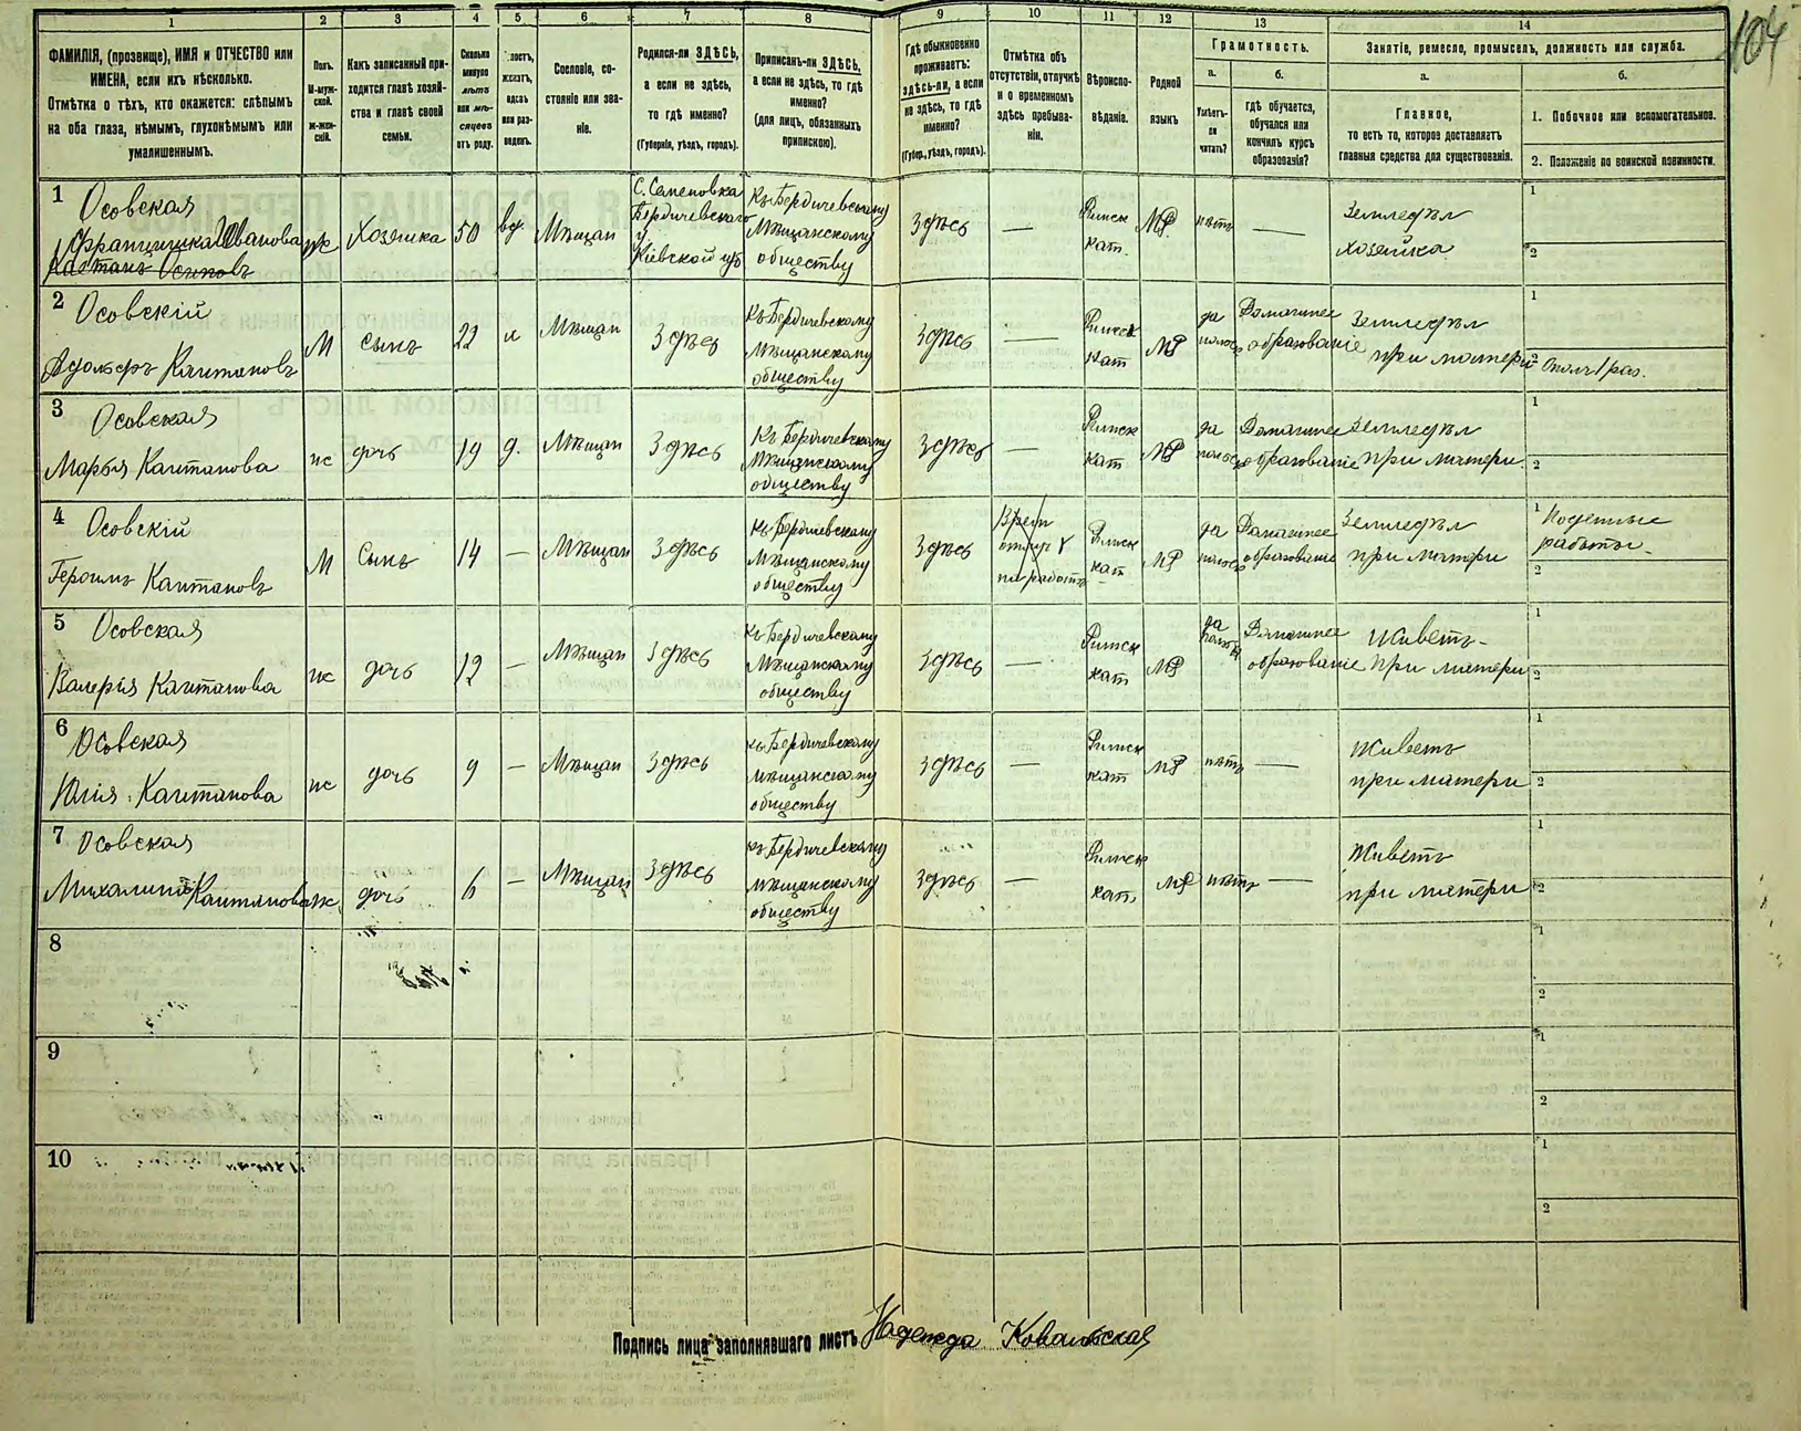 104
1 2 3 4 5 6 7 8 9 10 11 12 13 14
ФАМИЛІЯ, (прозвище), ИМЯ и ОТЧЕСТВО или
ИМЕНА, если ихъ нѣсколько.
Отмѣтка о тѣхъ, кто окажется: слѣпымъ
на оба глаза, нѣмымъ, глухонѣмымъ или
умалишеннымъ.
Полъ.
М-муж-
ской.
Ж-жен-
скій.
Какъ записанный при-
ходится главѣ хозяй-
ства и главѣ своей
семьи.
Сколько
минуло
лѣтъ
или мѣ-
сяцевъ
отъ роду.
лостъ,
женатъ,
вдовъ
или раз-
веденъ.
Сословіе, со-
стояніе или зва-
ніе.
Родился-ли ЗДѢСЬ,
а если не здѣсь,
то гдѣ именно?
(Губернія, уѣздъ, городъ).
Приписанъ-ли ЗДѢСЬ,
а если не здѣсь, то гдѣ
именно?
(для лицъ, обязанныхъ
припискою).
Гдѣ обыкновенно
проживаетъ:
здѣсь-ли, а если
не здѣсь, то гдѣ
именно?
(Губер., уѣздъ, городъ).
Отмѣтка объ
отсутствіи, отлучкѣ
и о временномъ
здѣсь пребыва-
ніи.
Вѣроиспо-
вѣданіе.
Родной
языкъ
Грамотность.
а. б.
Умѣетъ-
ли
читать?
гдѣ обучается,
обучался или
кончилъ курсъ
образованія?
Занятіе, ремесло, промыселъ, должность или служба.
а. б.
Главное,
то есть то, которое доставляетъ
главныя средства для существованія.
1. Побочное или вспомогательное.
2. Положеніе по воинской повинности.
1 Осовская
Францишка Иванова
Каетанъ Осиповъ
ж Хозяйка 50 вд. Мѣщан
С. Семеновка
Бердичевскаго
у
Кіевской губ
Къ Бердичевскому
Мѣщанскому
обществу
Здѣсь — Римск
кат.
нѣтъ —
Земледѣл
хозяйка
1
2
2 Осовскій
Адольфъ Каитановъ
М сынъ 22 х Мѣщан Здѣсь
Къ Бердичевскому
Мѣщанскому
обществу
Здѣсь — Римск
кат
да
Домашнее
образованіе
Земледѣл
при матери
1
2 Опол 1 раз.
3 Осовская
Марья Каитанова
ж дочь 19 д. Мѣщан Здѣсь
Къ Бердичевскому
Мѣщанскому
обществу
Здѣсь — Римск
кат
да
Домашнее
образованіе
Земледѣл
при матери.
1
2
4 Осовскій
Героимъ Каитановъ
М Сынъ 14 — Мѣщан Здѣсь
Къ Бердичевскому
Мѣщанскому
обществу
Здѣсь
на работѣ
Римск
кат
да
Домашнее
образованіе
Земледѣл
при матери
1 Поденные
работы.
2
5 Осовская
Валерія Каитанова
ж дочь 12 — Мѣщан Здѣсь
Къ Бердичевскому
Мѣщанскому
обществу
Здѣсь — Римск
кат
да
Домашнее
образованіе
Живетъ
при матери
1
2
6 Осовская
Юлія Каитанова
ж дочь 9 — Мѣщан Здѣсь
Къ Бердичевскому
Мѣщанскому
обществу
Здѣсь — Римск
кат
нѣтъ —
Живетъ
при матери
1
2
7 Осовская
Михалина Каитанова
ж дочь 6 — Мѣщан Здѣсь
Къ Бердичевскому
Мѣщанскому
обществу
Здѣсь — Римск
кат
нѣтъ —
Живетъ
при матери
1
2
8
1
2
9
1
2
10
1
2
Подпись лица заполнявшаго листъ Надежда Ковальская